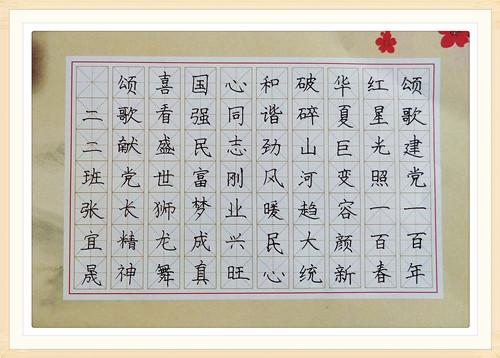 颂歌建党一百年
红星光照一百春
华夏巨变容颜新
破碎山河趋大统
和谐劲风暖民心
心同志刚业兴旺
国强民富梦成真
喜看盛世狮龙舞
颂歌献党长精神
二二班张宜晟